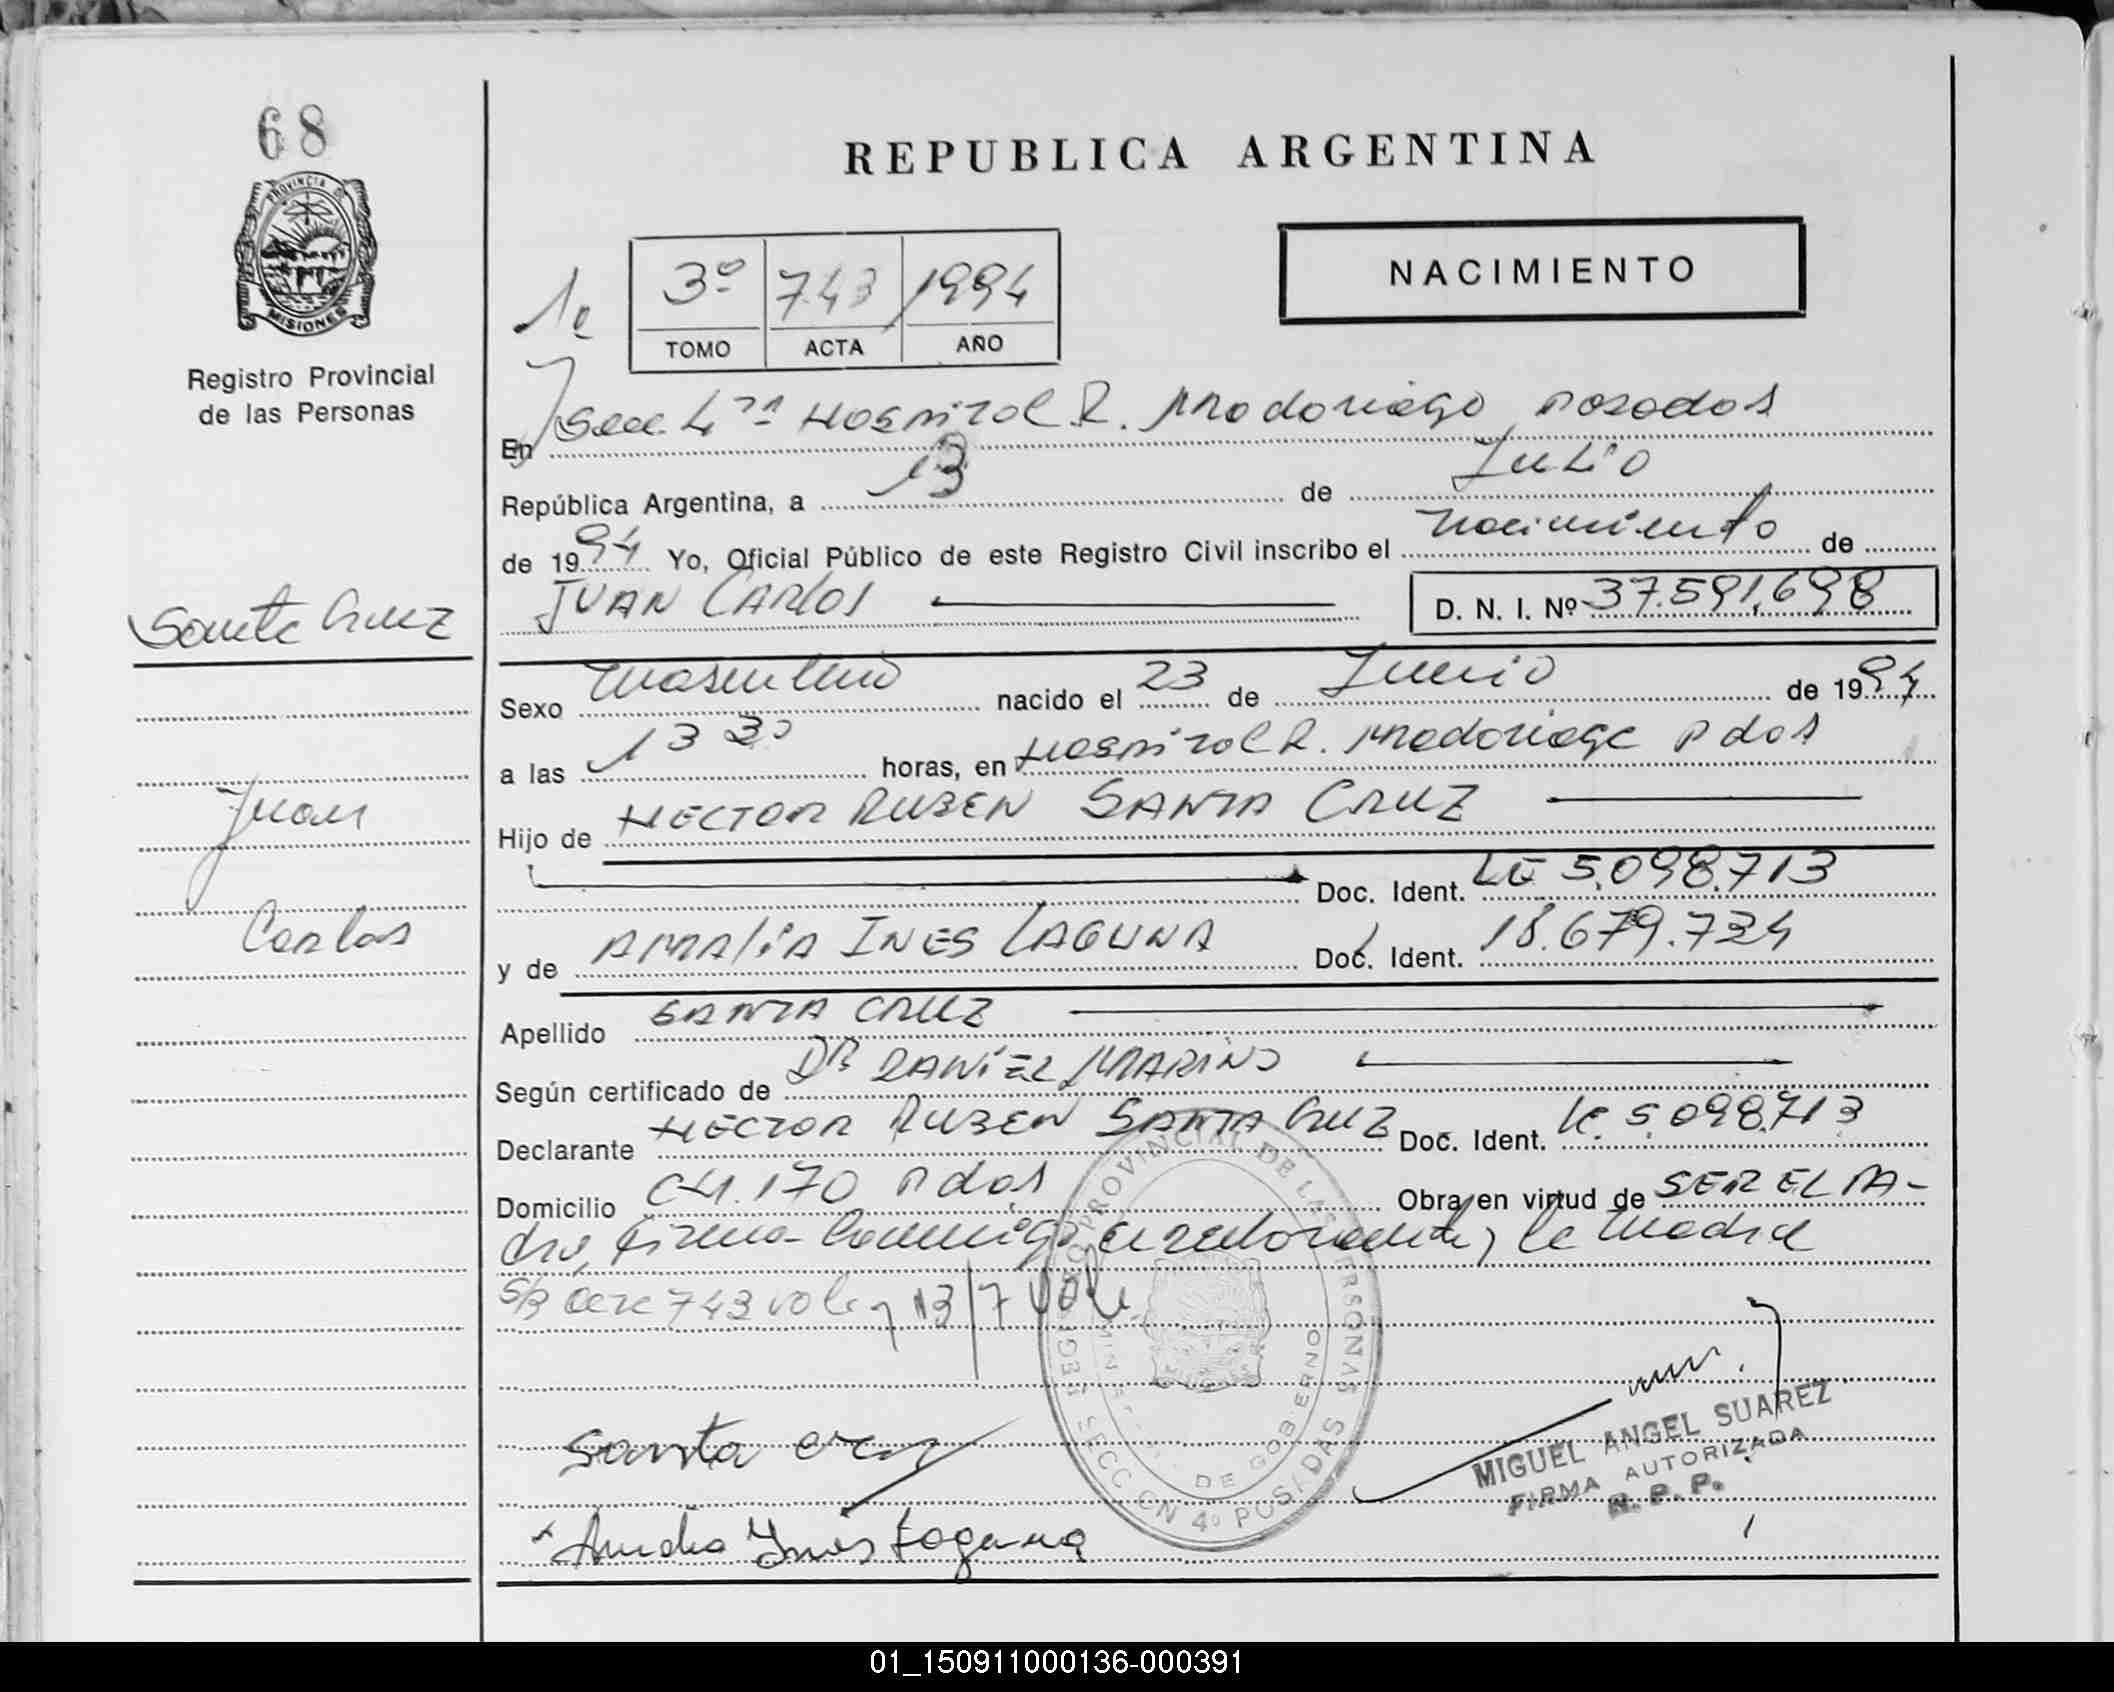 68
REPUBLICA ARGENTINA
PROVINCIA DE
MISIONES
Registro Provincial
de las Personas
NACIMIENTO
1º
3º 743 1994
TOMO ACTA AÑO
En Secc. 4ta Hospital R. Madariaga Posadas
República Argentina, a 13 de Julio
de 1994 Yo, Oficial Público de este Registro Civil inscribo el nacimiento de
JUAN CARLOS D. N. I. Nº 37.591.698
Santa Cruz
Juan
Carlos
Sexo masculino nacido el 23 de Junio de 1994
a las 13 30 horas, en Hospital R. Madariaga Pdas
Hijo de HECTOR RUBEN SANTA CRUZ
Doc. Ident. LE 5.098.713
y de AMALIA INES LAGUNA Doc. Ident. 18.679.734
Apellido SANTA CRUZ
Según certificado de DR DANIEL MARINO
Declarante HECTOR RUBEN SANTA CRUZ Doc. Ident. LE. 5.098.713
Domicilio CH. 170 Pdas Obra en virtud de SER EL PA-
dre, firma conmigo el declarante, la madre
S/B 743 vale 13/7 Vale
REGISTRO PROVINCIAL DE LAS PERSONAS
DE GOBIERNO
SECCION 4º POSADAS
Santa Cruz
MIGUEL ANGEL SUAREZ
FIRMA AUTORIZADA
R. P. P.
x Amalia Ines Laguna
01_150911000136-000391